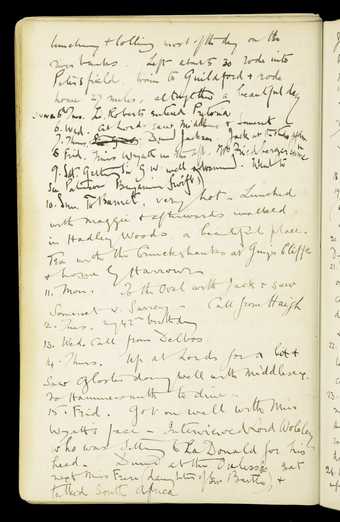 lunching & lolling most of the day on the
river banks. Left about 5.30 rode into
Petersfield, train to Guildford & rode
home 27 miles, altogether a beautiful day
June 5th Tues. Ld Roberts entered Pretoria
6. Wed. At Lords saw Middlesex & Somerset
7. Thurs. Dined Jackson. Jack at
8. Frid. Miss Wyatt in the aft.
9. Sat. Getting Miss W. well advanced. Went to
see Palstaun Benjamin Swift)
10. Sun. To Barnet. very hot - Lunched
with Maggie & afterwards walked
in Hadley Woods, a beautiful place.
Tea with the Cruckshanks at Guys Cliffe
& home by Harrow
11. Mon. To the Oval with Jack & saw
Somerset v. Surrey - Call from Haigh
12. Tues. my 42nd birthday
13. Wed. Call from Delbos
14. Thurs. Up at Lords for a bit &
saw Gloster doing well with Middlesex.
To Hammersmith to dine
15. Frid. Got on well with Miss
Wyatt's face - Interviewed Lord Wolseley
who was sitting to Ha Donald for his
head. - Dined at the sat
next Miss Frere (daughter of Sir Bartle), &
talked South Africa